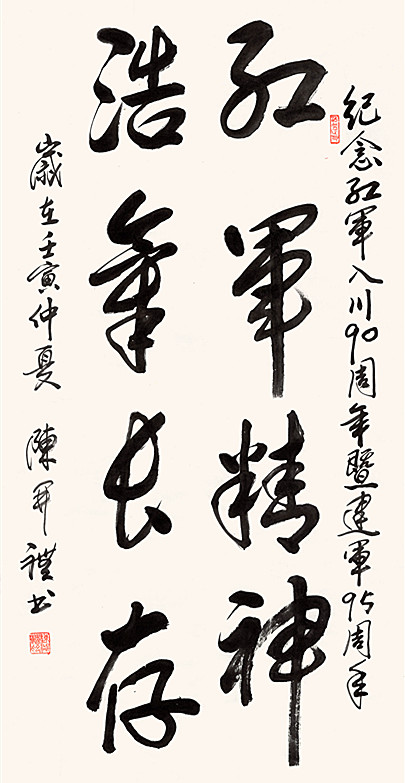 纪念红軍入川90周年暨建軍95周年
红軍精神
浩氣长存
歲在壬寅仲夏 陳開禩书